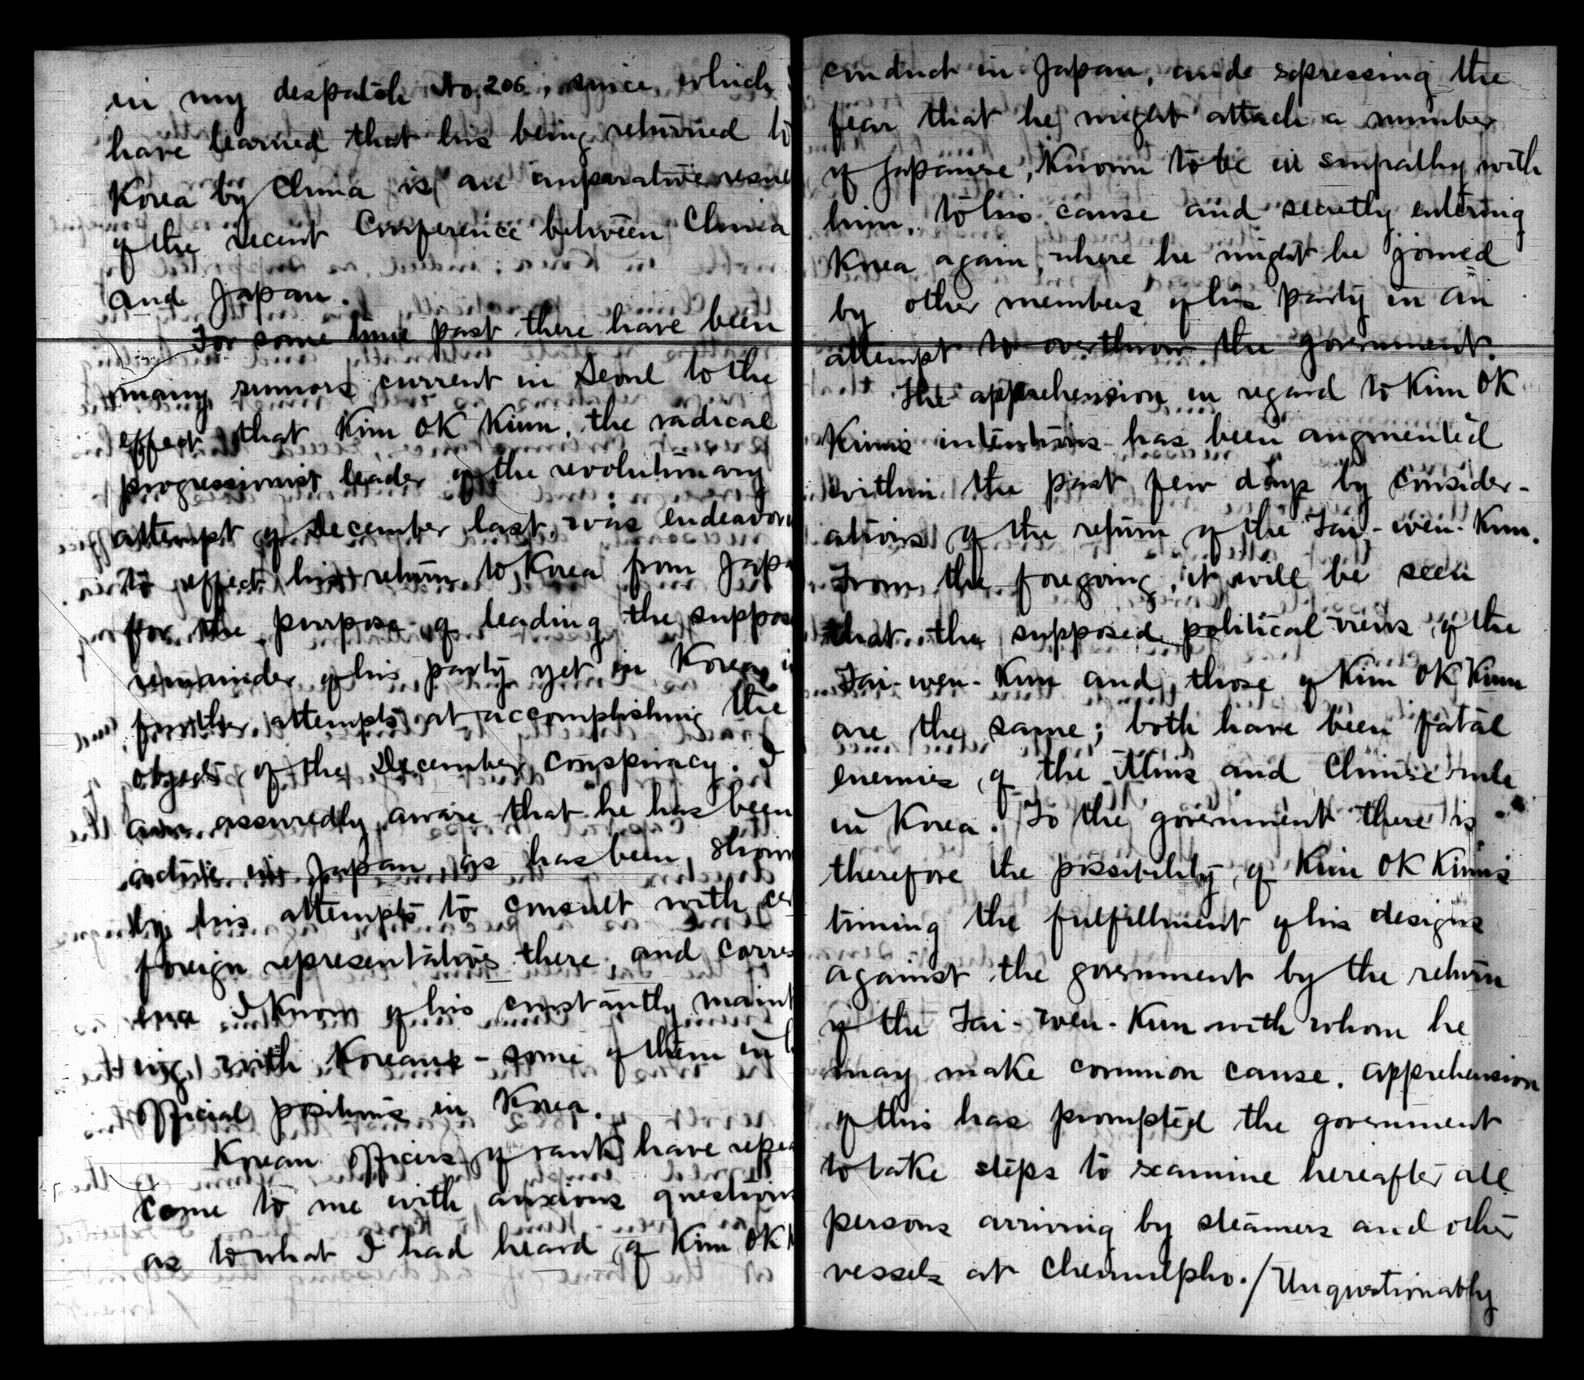 in my despatch No. 206, since which
have learned that his being returned to
Korea by China is an imparative resu
of the recent Conference between China
and Japan.
For some time past there have been
many rumors current in Seoul to the
effect that Kim OK Kiun, the radical
progressionist leader of the revolutionary
attempt of December last, was endeavori
to effect his return to Korea from Japa
for the purpose of leading the suppose
remainder of his party yet in Korea, i
further attempts at accomplishing the
objects of the December conspiracy. I
am assuredly aware that he has been
active in Japan, as has been shown
by his attempts to consult with cer
foreign representatives there, and corres
ence I know of his constantly maint
ing with Koreans - some of them in h
official positions in Korea.
Korean officers of rank have repea
come to me with anxious questions
as to what I had heard of Kim OK K
conduct in Japan, and expressing the
fear that he might attach a number
of Japanese, known to be in simpathy with
him, to his cause and secretly entering
Korea again, where he might be joined
by other members of his party in an
attempt to overthrow the government.
The apprehension in regard to Kim OK
Kiun's intentions has been augmented
within the past few days by consider-
ations of the return of the Tai-wen-Kun.
From the foregoing, it will be seen
that the supposed political views of the
Tai-wen-Kun and those of Kim OK Kiun
are the same; both have been fatal
enemies of the Mins and Chinese rule
in Korea. To the government there is
therefore the possibility of Kim OK Kiun's
timing the fulfillment of his designs
against the government by the return
of the Tai-wen-Kun with whom he
may make common cause. Apprehension
of this has prompted the government
to take steps to examine hereafter all
persons arriving by steamers and other
vessels at Chemulpho. / Unquestionably